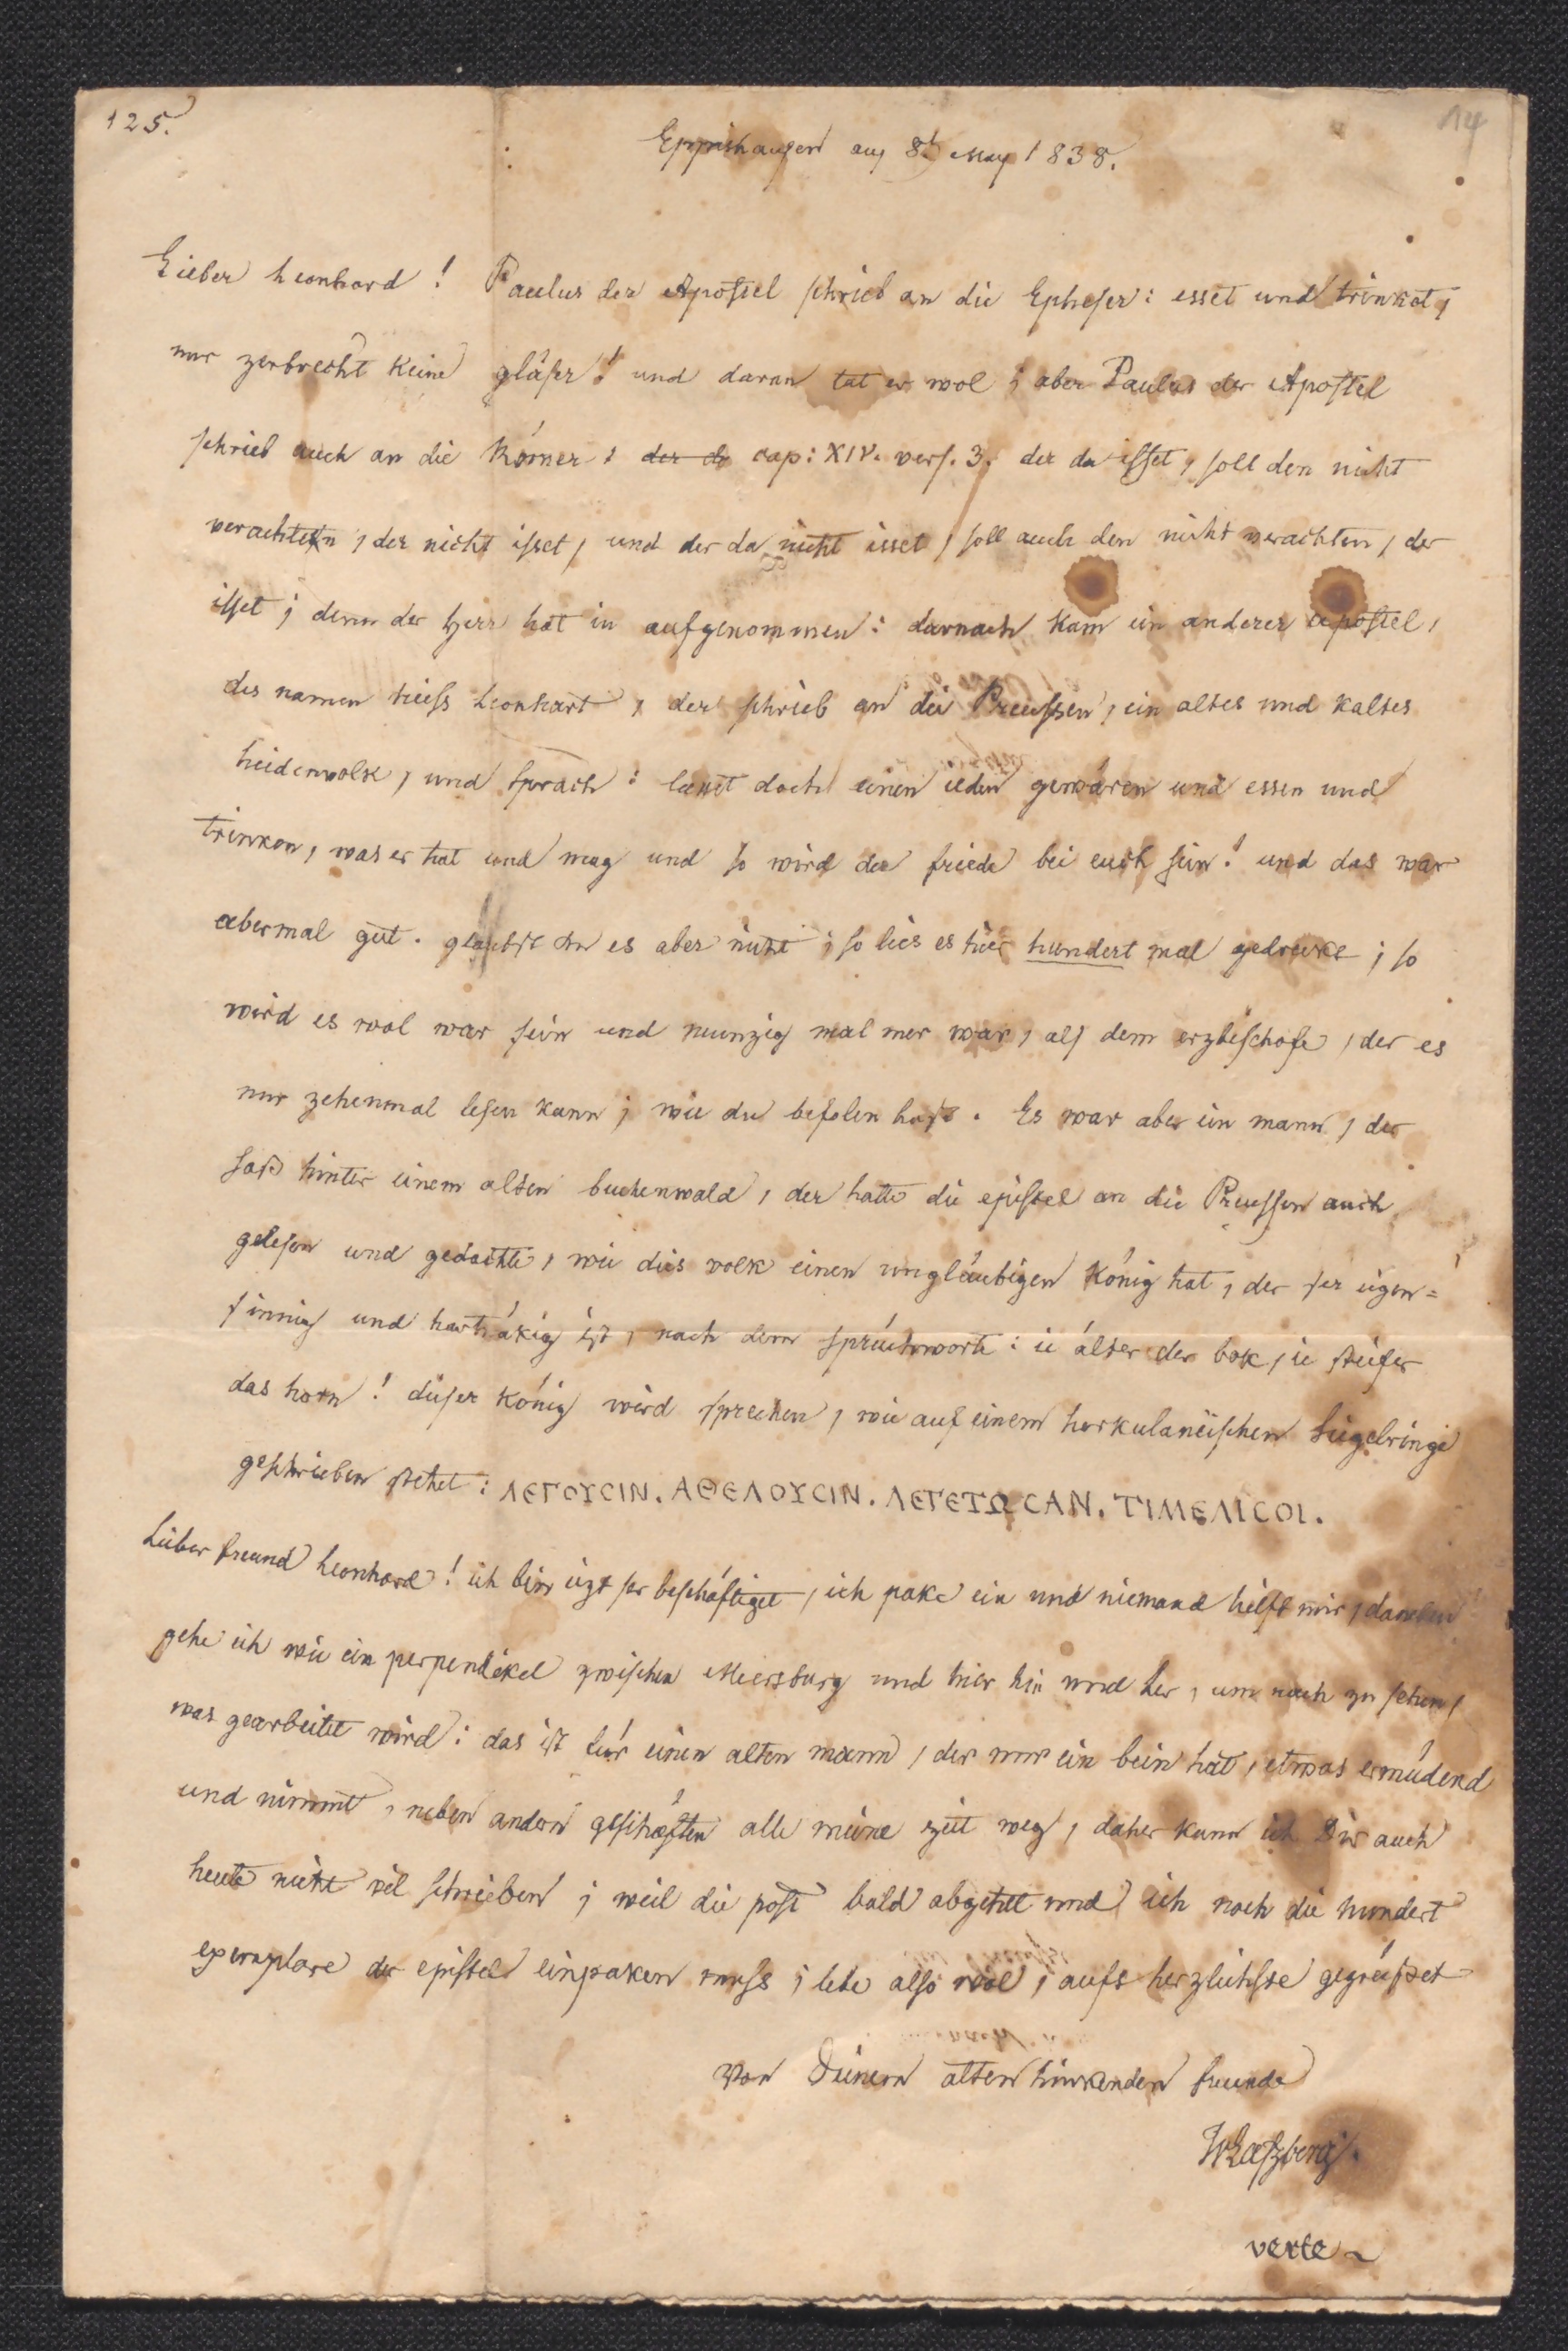 125.
14
Eppishausen am 8t. May 1838.
Lieber Leonhard! Paulus der Apostel schrieb an die Epheser: esset und trinket,
nur zerbrecht keine gläser! und daran tat er wol; aber Paulus der Apostel
schrieb auch an die Römer: der da cap: XIV. vers. 3. der da isset, soll den nicht
verachten, der nicht isset, und der da nicht isset, soll auch den nicht verachten, der
isset; denn der Herr hat in aufgenommen: darnach kam ein anderer apostel,
des namen hiess Leonhart, der schrieb an die Preussen, ein altes und kaltes
heidenvolk, und sprach: lasset doch einen ieden gewären und essen und
trinken, was er hat und mag und so wird der friede bei euch sein! und das war
abermal gut. glaubst du es aber nicht; so lies es hier hundert mal gedruckt; so
wird es wol war sein und neunzig mal mer war, als dem erzbischofe, der es
nur zehenmal lesen kann; wie du befolen hast. Es war aber ein mann, der
saß hinter einem alten buchenwald, der hatte die epistel an die Preussen auch
gelesen und gedachte, wie dies volk einen ungläubigen König hat, der ser eigen=
sinnig und hartnäkig ist, nach dem sprüchworte: ie älter der bok, ie steifer
das horn! dieser könig wird sprechen, wie auf einem herkulaneischen Sigelringe
geschrieben stehet: ΛΕΓΟΥCΙΝ. ΑΘΕΛΟΥCΙΝ. ΛΕΓΕΤΩCΑΝ. ΤΙΜΕΛΙCΟΙ.
Lieber freund Leonhard! ich bin iezt ser beschäftiget, ich pake ein und niemand hilft mir, daneben
gehe ich wie ein perpendikel zwischen Meersburg und hier hin und her, um nach zu sehen,
was gearbeitet wird: das ist für einen alten mann, der nur ein bein hat, etwas ermüdend
und nimmt, neben andern geschäften alle meine zeit weg, daher kann ich Dir auch
heute nicht vil schreiben; weil die post bald abgehet und ich noch die hundert
exemplare der epistel einpaken muss; lebe also wol, aufs herzlichste gegrüsset
von Deinem alten hinkenden freunde
JvLaßberg.
verte